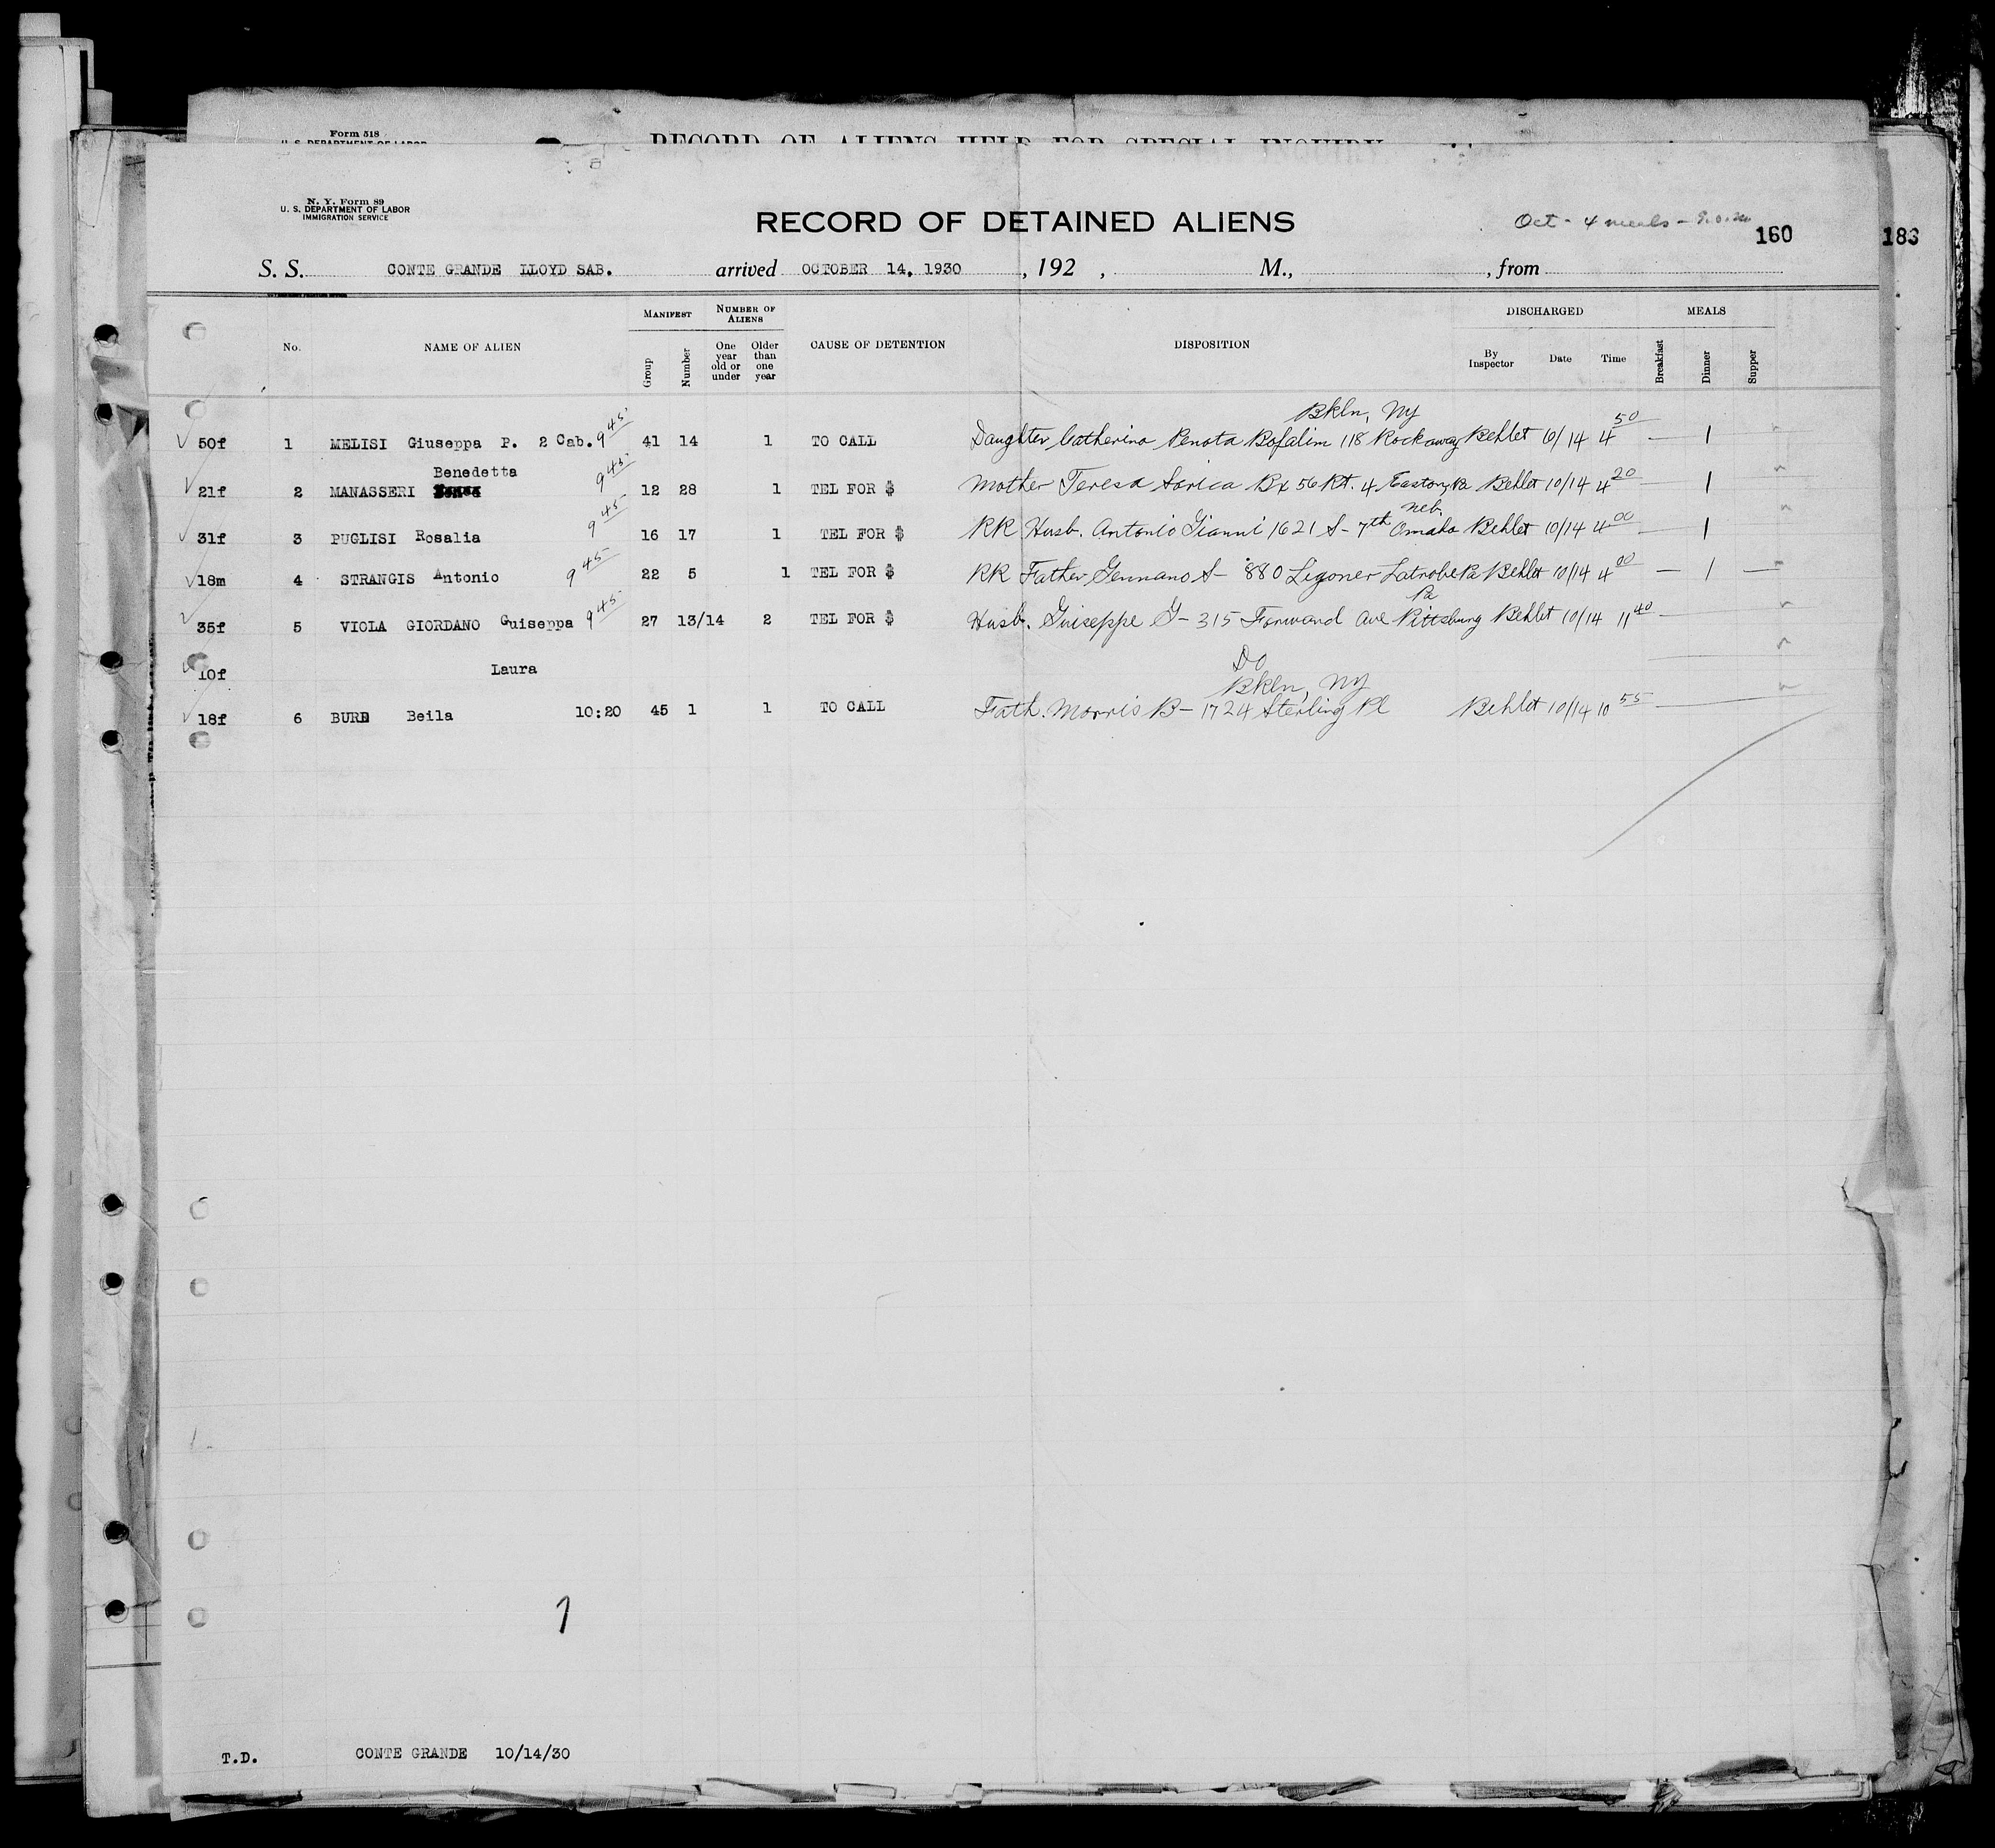 Form 518
U. S. DEPARTMENT OF LABOR
RECORD OF ALIENS HELD FOR SPECIAL INQUIRY
N. Y. Form 89
U. S. DEPARTMENT OF LABOR
IMMIGRATION SERVICE
RECORD OF DETAINED ALIENS
Oct - 4 meals -
160
183
S. S. CONTE GRANDE LLOYD SAB. arrived OCTOBER 14, 1930, 192 , M., , from
No. NAME OF ALIEN MANIFEST Group Number NUMBER OF ALIENS One year old or under Older than one year CAUSE OF DETENTION DISPOSITION DISCHARGED By Inspector Date Time MEALS Breakfast Dinner Supper
Bkln, Ny
50f 1 MELISI Giuseppa P. 2 Cab. 9 45 41 14 1 TO CALL Daughter Catherina Penota 118 Rockaway Behlet 10/14 4 50 — 1
Benedetta
21f 2 MANASSERI 9 45 12 28 1 TEL FOR $ Mother Teresa Bx 56 Rt. 4 Easton, Pa Behlet 10/14 4 20 — 1
Neb.
31f 3 PUGLISI Rosalia 9 45 16 17 1 TEL FOR $ RR Husb. Antonio Gianni 1621 S - 7th Omaha Behlet 10/14 4 00 — 1
18m 4 STRANGIS Antonio 9 45 22 5 1 TEL FOR $ RR Father Gennano S - 880 Ligoner Latrobe Pa Behlet 10/14 4 00 — 1 —
Pa
35f 5 VIOLA GIORDANO Guiseppa 9 45 27 13/14 2 TEL FOR $ Husb. Guiseppe G - 315 Forward Ave Pittsburg Behlet 10/14 11 40 —
10f Laura Do
Bkln, Ny
18f 6 BURD Beila 10:20 45 1 1 TO CALL Fath. Morris B - 1724 Sterling Pl Behlet 10/14 10 55 —
1
T.D. CONTE GRANDE 10/14/30